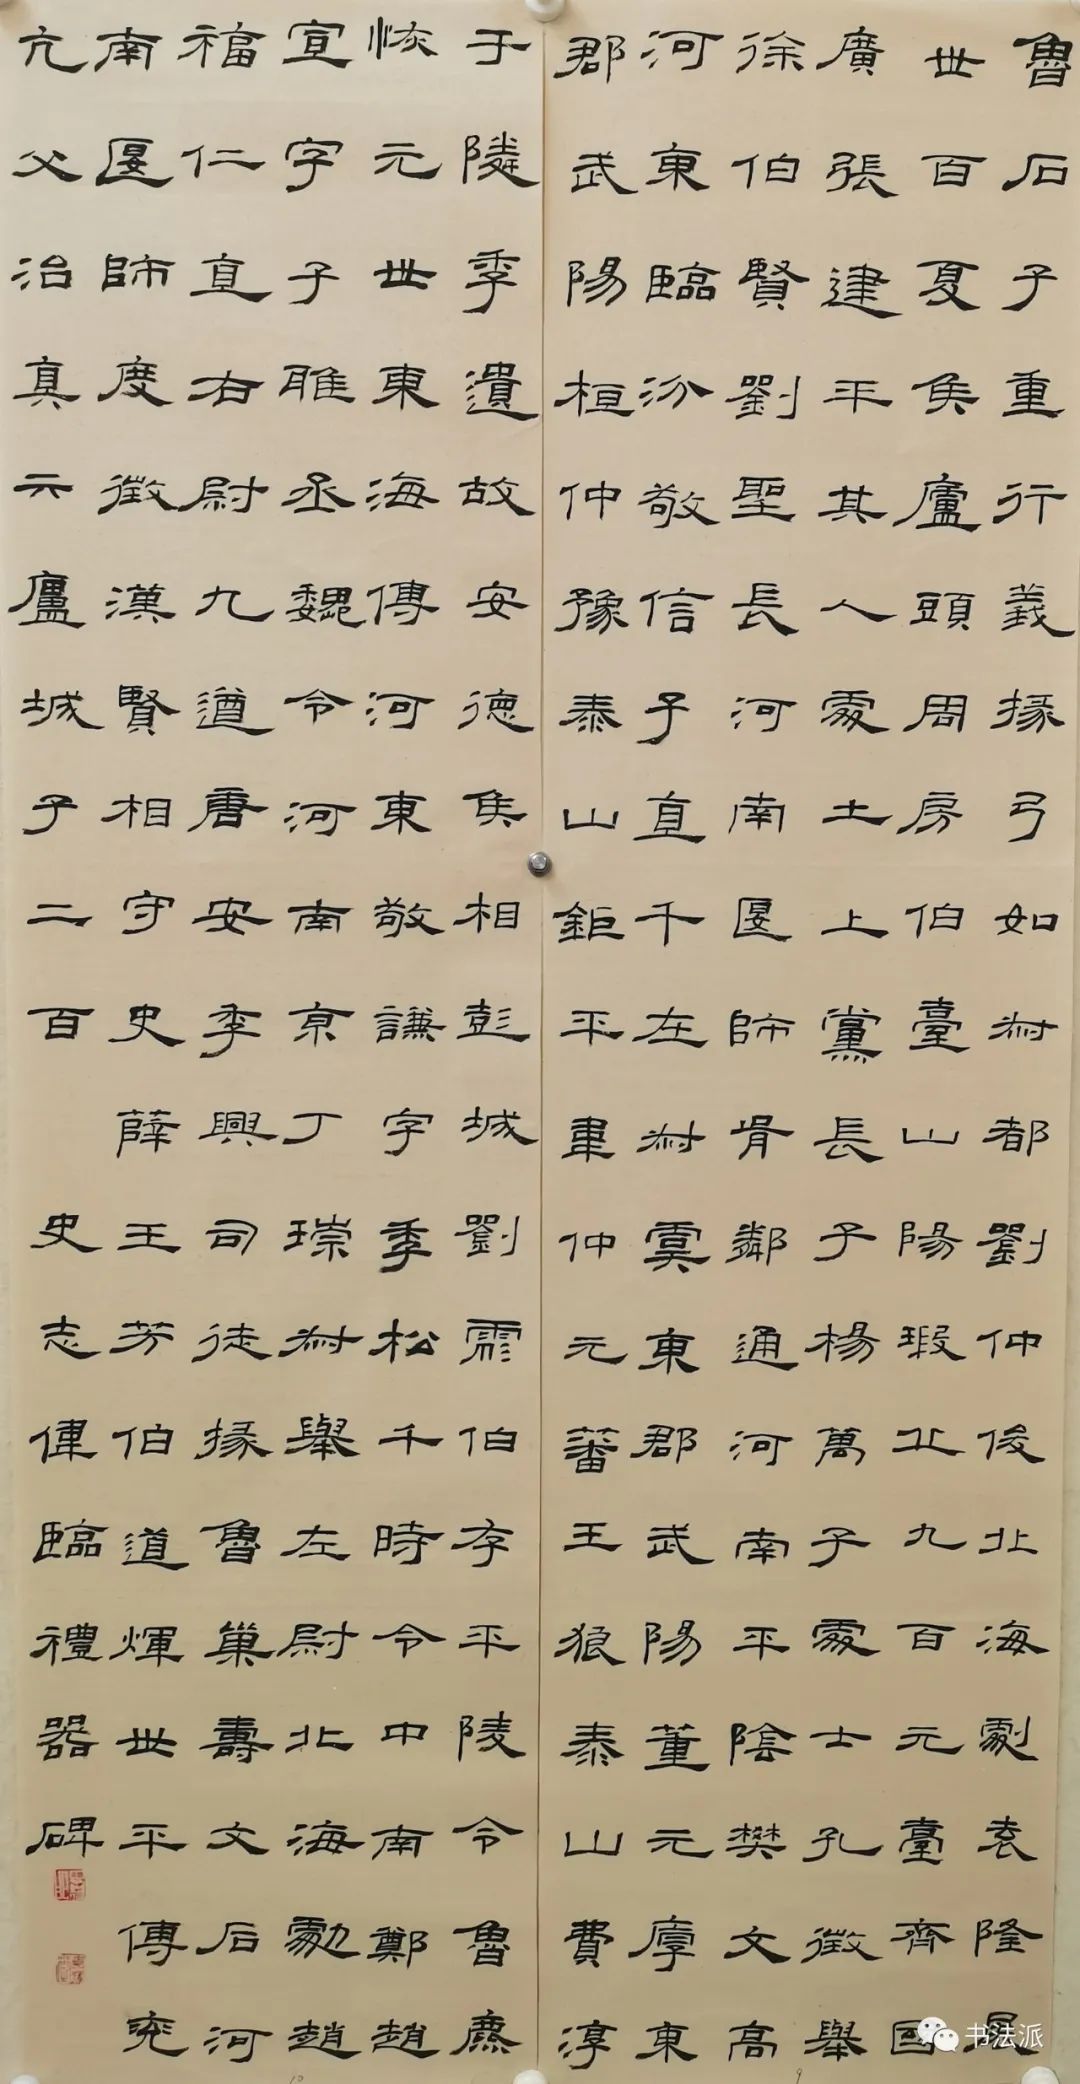 魯石子重行義掾弓如叔都劉仲俊北海劇袁隆展
世百夏侯廬頭周房伯臺山陽瑕丘九百元臺齊國
廣張建平其人處土上黨長子楊萬子處士孔徵舉
徐伯賢劉聖長河南匽師胥鄰通河南平陰樊文高
河東臨汾敬信子直千左叔虞東郡武陽董元厚東
郡武陽桓仲豫泰山鉅平韋仲元蕃王狼泰山費淳
于隣季遺故安德侯相彭城劉彪伯存平陵令魯麃
恢元世東海傅河東敬謙字季松千時令中南鄭趙
宣字子雎丞魏令河南京丁琮叔舉左尉北海劇趙
福仁直右尉九遒唐安季興司徒掾魯巢壽文后河
南匽師度徵漢賢相守史薛王芳伯道煇世平傅兗
亢父治真亓廬城子二百
史志偉臨禮器碑
书法派
10
9